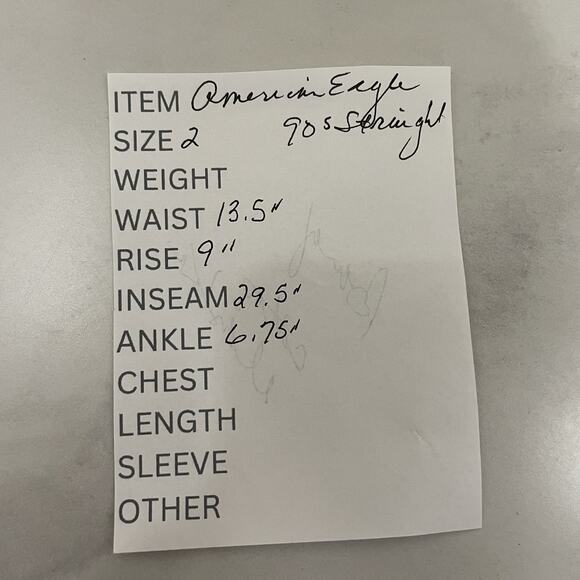 ITEM American Eagle
SIZE 2 90s Straight
WEIGHT
WAIST 13.5"
RISE 9"
INSEAM 29.5"
ANKLE 6.75"
CHEST
LENGTH
SLEEVE
OTHER